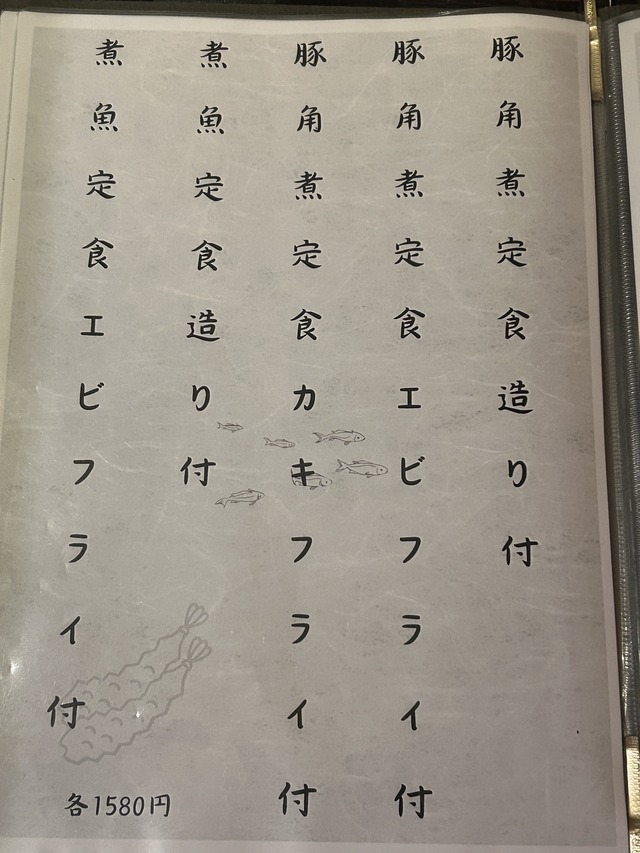 豚角煮定食造り付
豚角煮定食エビフライ付
豚角煮定食カキフライ付
煮魚定食造り付
煮魚定食エビフライ付
各1580円